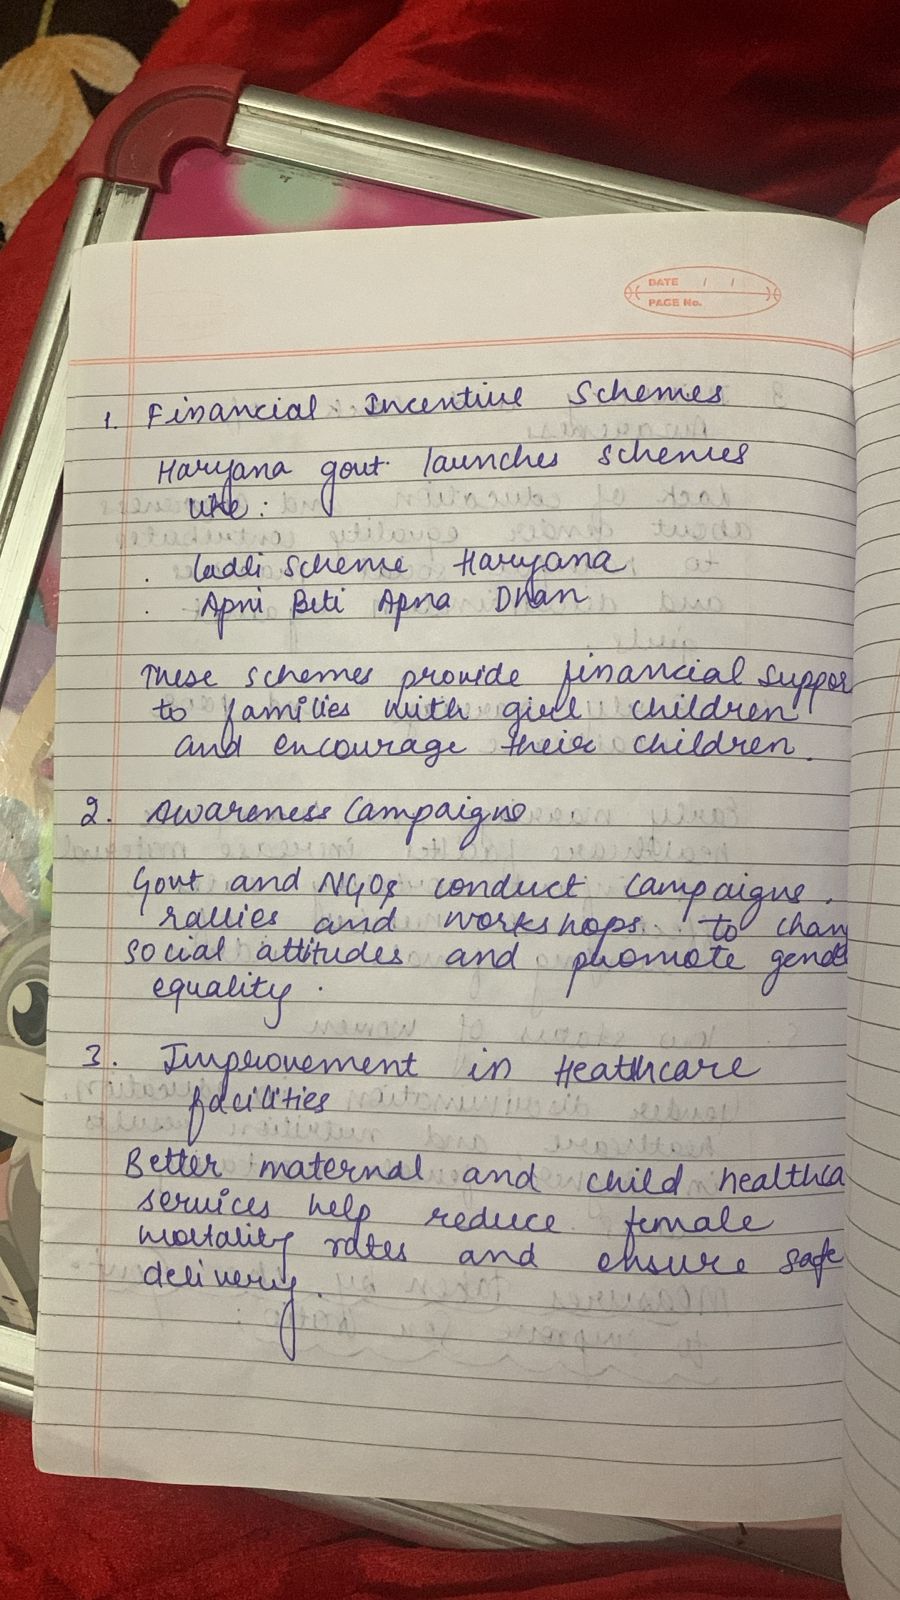 DATE / /
PAGE No.
1. Financial Incentive Schemes
Haryana govt. launches schemes
like:
. Ladli Scheme Haryana
. Apni Beti Apna Dhan
These schemes provide financial suppor
to families with girl children
and encourage their children.
2. Awareness Campaigns
Govt and NGOs conduct campaigns.
rallies and workshops. to chan
social attitudes and promote gende
equality.
3. Improvement in Healthcare
facilities
Better maternal and child healthca
services help reduce female
mortality rates and ensure safe
delivery.